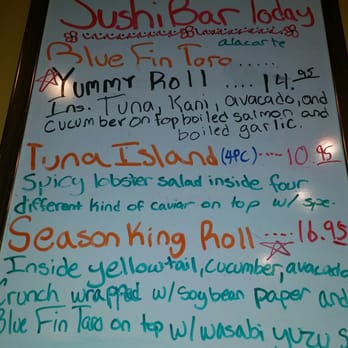 Sushi Bar Today
alacarte
Blue Fin Toro .....
Yummy Roll .... 14.95
Ins. Tuna, Kani, avacado, and
cucumber on top boiled salmon and
boiled garlic.
Tuna Island (4PC) .... 10.95
Spicy lobster salad inside four
different kind of caviar on top w/ spe.
Season King Roll ..... 16.95
Inside yellowtail, cucumber, avacado
Crunch wrapped w/ soybean paper and
Blue Fin Toro on top w/ wasabi yuzu s